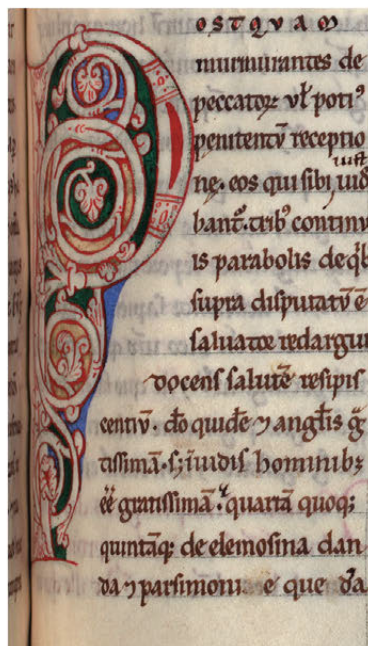 POSTQVAM
murmurantes de
peccatoꝝ vł poti⁹
penitentū receptio
nē. eos qui sibi iusti uid
bant᷑. trib⁹ continu
is parabolis de qͥb
supra disputatū ē
saluator redargui
docens salutē resipis
centiū. d̄o quidē ⁊ angłis gͣ
tissimā. sꝫ īuidis hominibꝫ
ēē gratissimā. quartā quoqꝫ
quintāqꝫ de elemosina dan
da ⁊ parsimonia ē que